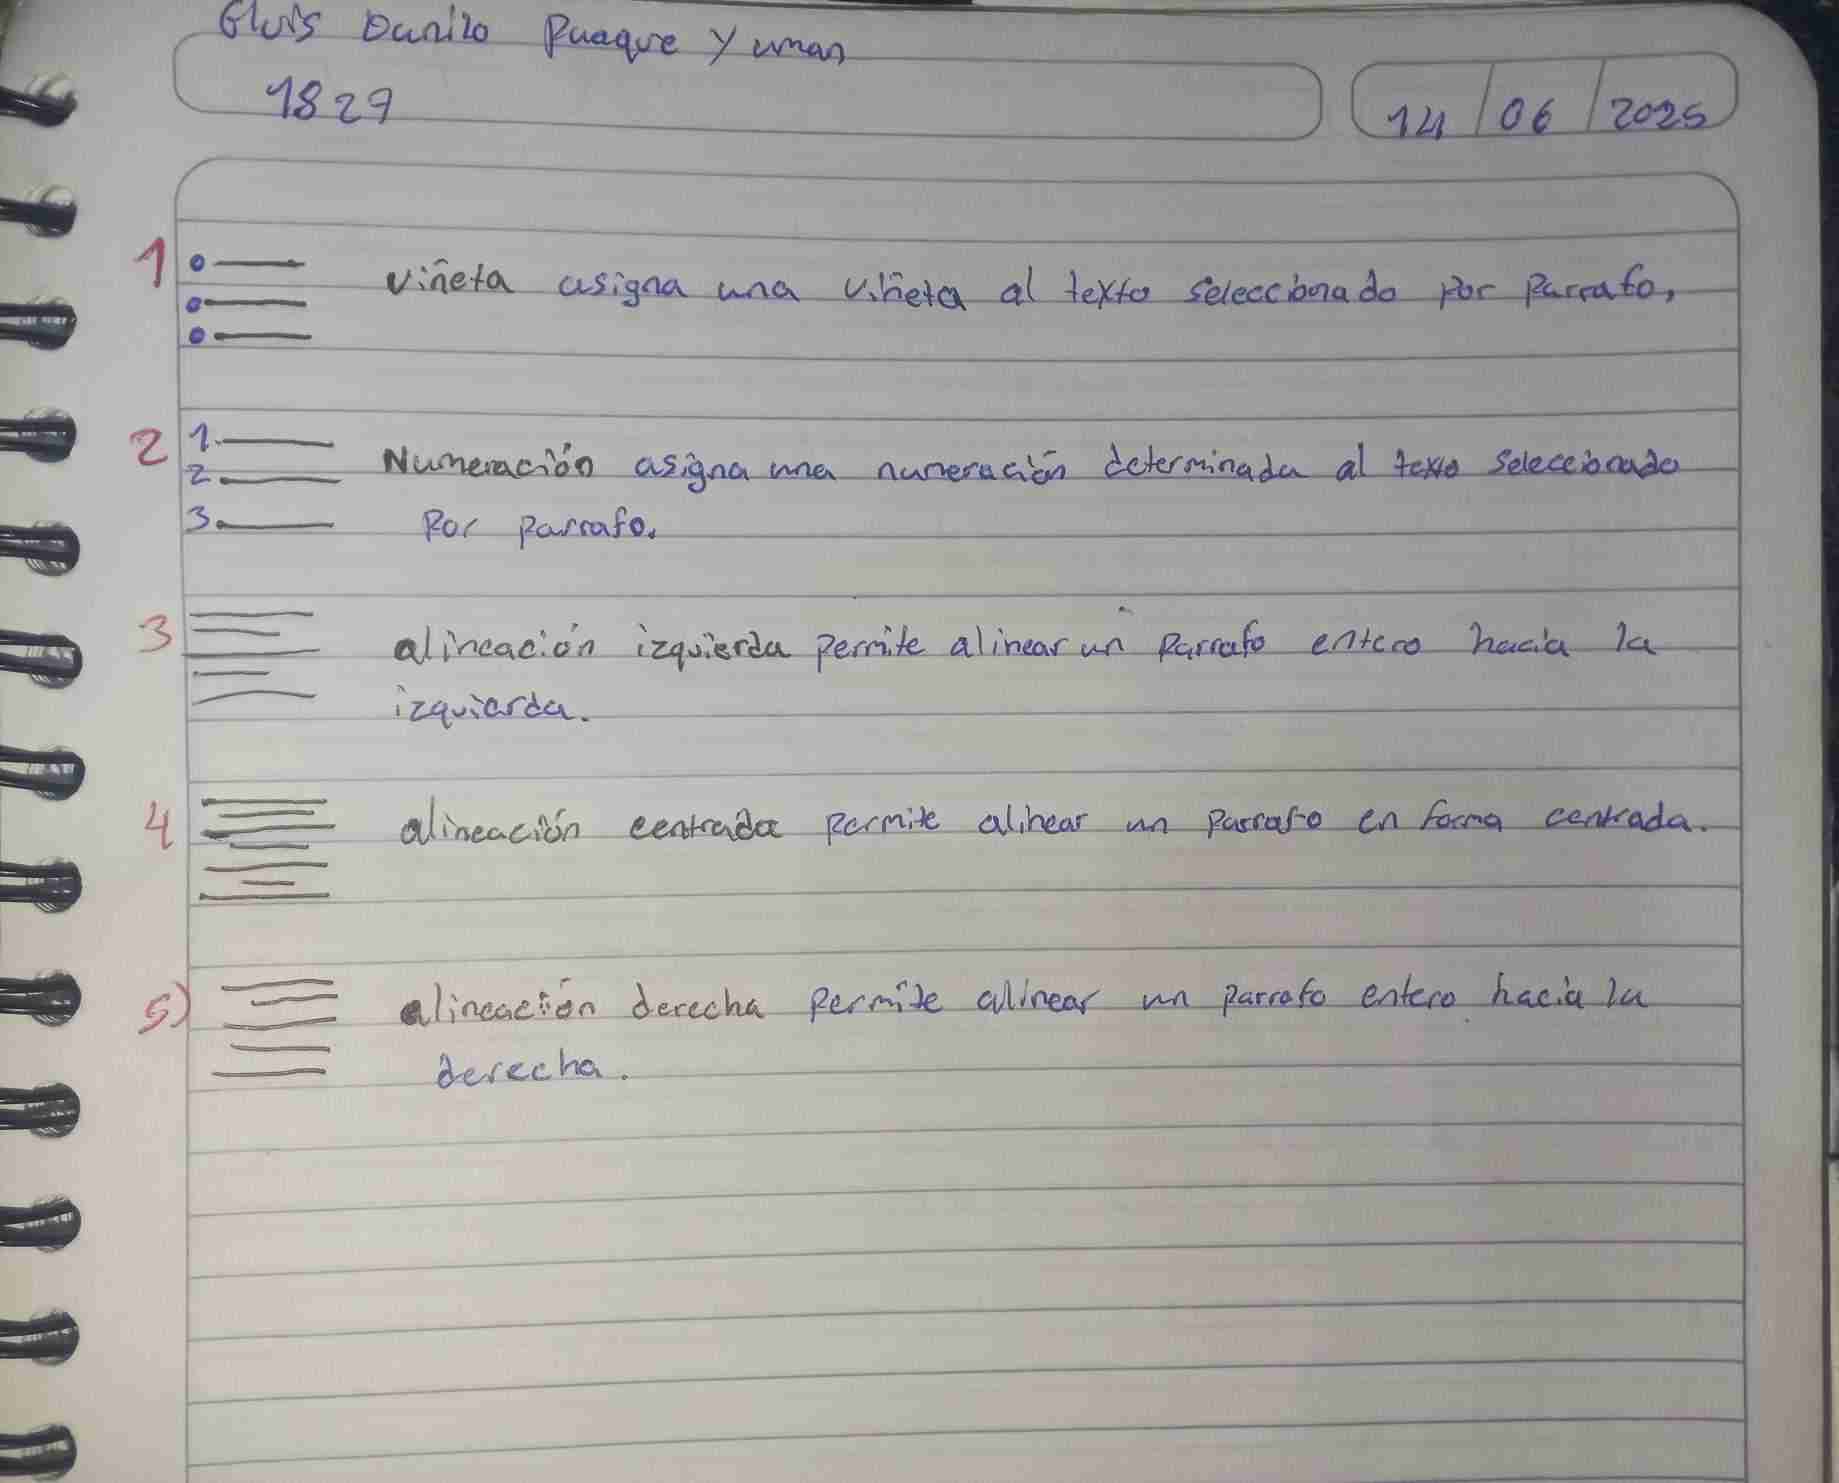 Eluis Danilo Puaque Yuman
1827
14/06/2025
1 viñeta asigna una viñeta al texto seleccionado por parrafo,
2 1. Numeración asigna una numeración determinada al texto seleccionado
2.
3. Por parrafo.
3 alineación izquierda permite alinear un parrafo entero hacia la
izquierda.
4 alineación centrada permite alinear un parrafo en forma centrada.
5) alineación derecha permite alinear un parrafo entero hacia la
derecha.